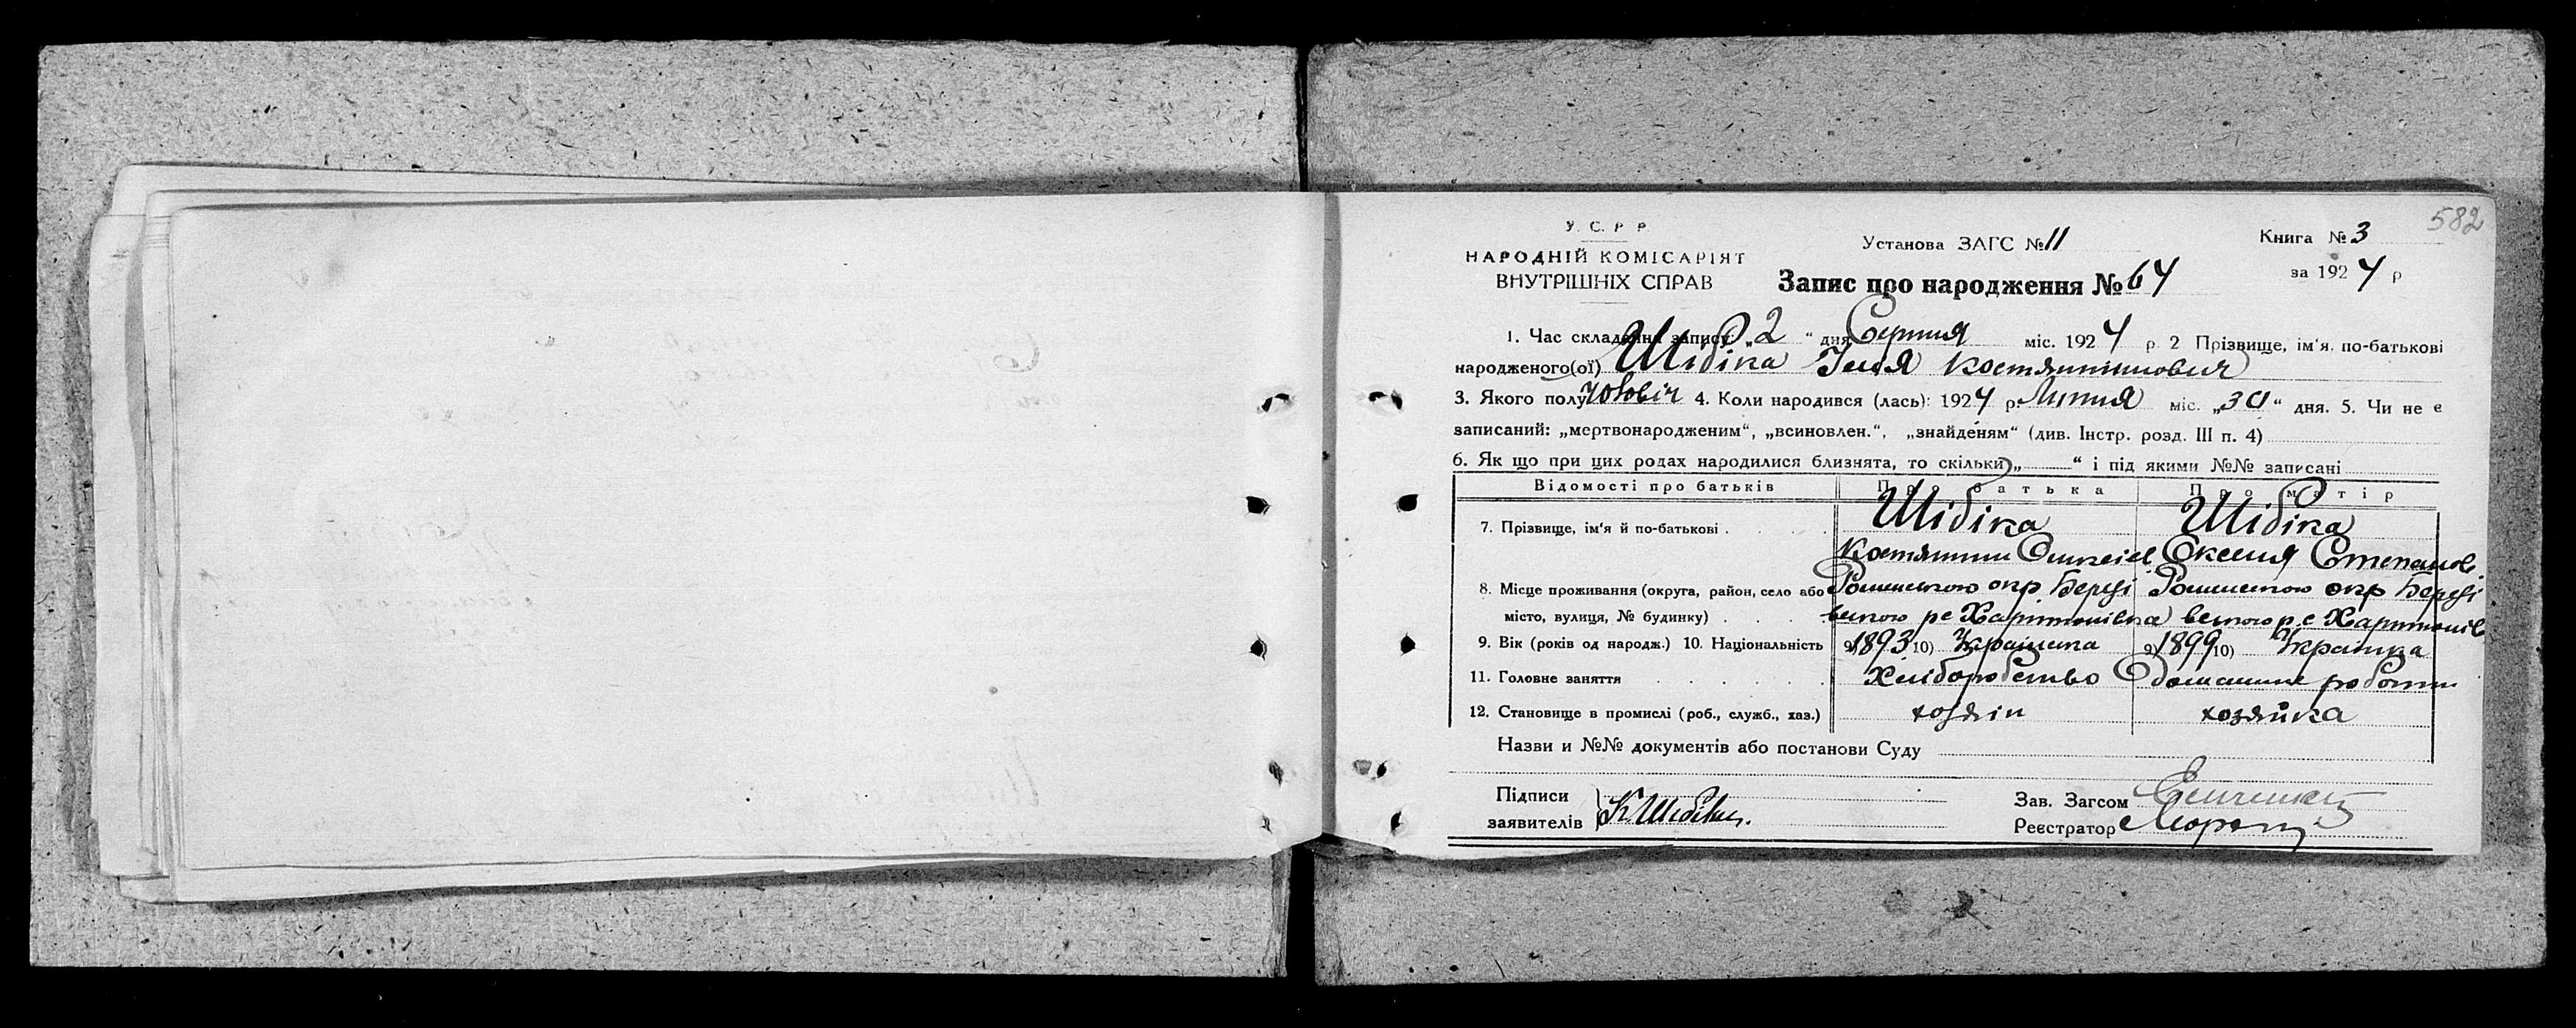 582
У. С. Р. Р.
НАРОДНІЙ КОМІСАРІЯТ
ВНУТРІШНІХ СПРАВ
Установа ЗАГС № 11
Книга № 3
за 1924 р
Запис про народження № 64
1. Час складання запису: „2“ дня Серпня міс. 1924 р. 2 Прізвище, ім'я, по-батькові
народженого(ої) Шібіка Ілія Костянтинович
3. Якого полу Чоловіч 4. Коли народився (лась): 1924 р. Липня міс. „30“ дня. 5. Чи не є
записаний: „мертвонародженим“, „всиновлен.“, „знайденям“ (див. Інстр. розд. III п. 4)
6. Як що при цих родах народилися близнята, то скільки „ “ і під якими №№ записані
Відомості про батьків Про батька Про матір
7. Прізвище, ім'я й по-батькові Шібіка Шібіка
Костянтин Оксения Степанов
8. Місце проживання (округа, район, село або Роменською окр Берези Роменською окр Берези
місто, вулиця, № будинку) вською ре Харитонівка вською ре Харитонів
9. Вік (років од народж.) 10. Національність 9) 1893 10) Украінка 9) 1899 10) Украінка
11. Головне заняття Хліборобство Домашне роботи
12. Становище в промислі (роб., служб., хаз.) хозяін хозяйка
Назви и №№ документів або постанови Суду
Підписи
заявителів К. Шибіка.
Зав. Загсом
Реєстратор